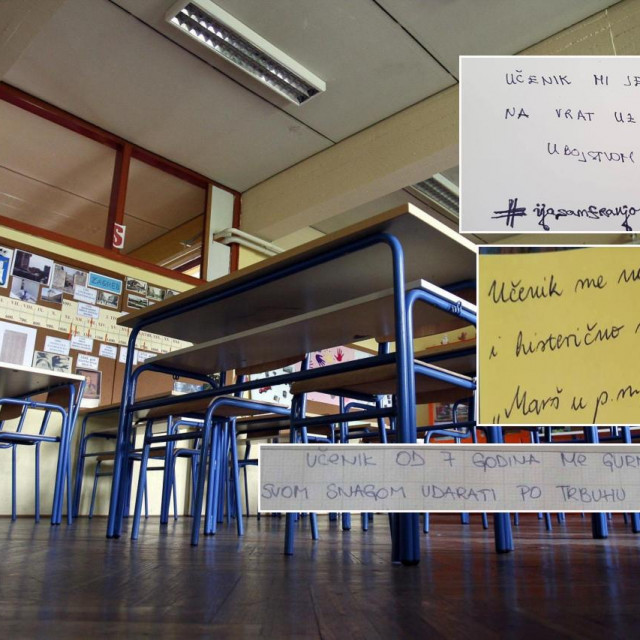 UČENIK MI JE
NA VRAT UZ
UBOJSTVOM
Učenik me
i histerično
"Marš u p.m
UČENIK OD 7 GODINA ME
SVOM SNAGOM UDARATI PO TRBUHU
S
ZAGREB